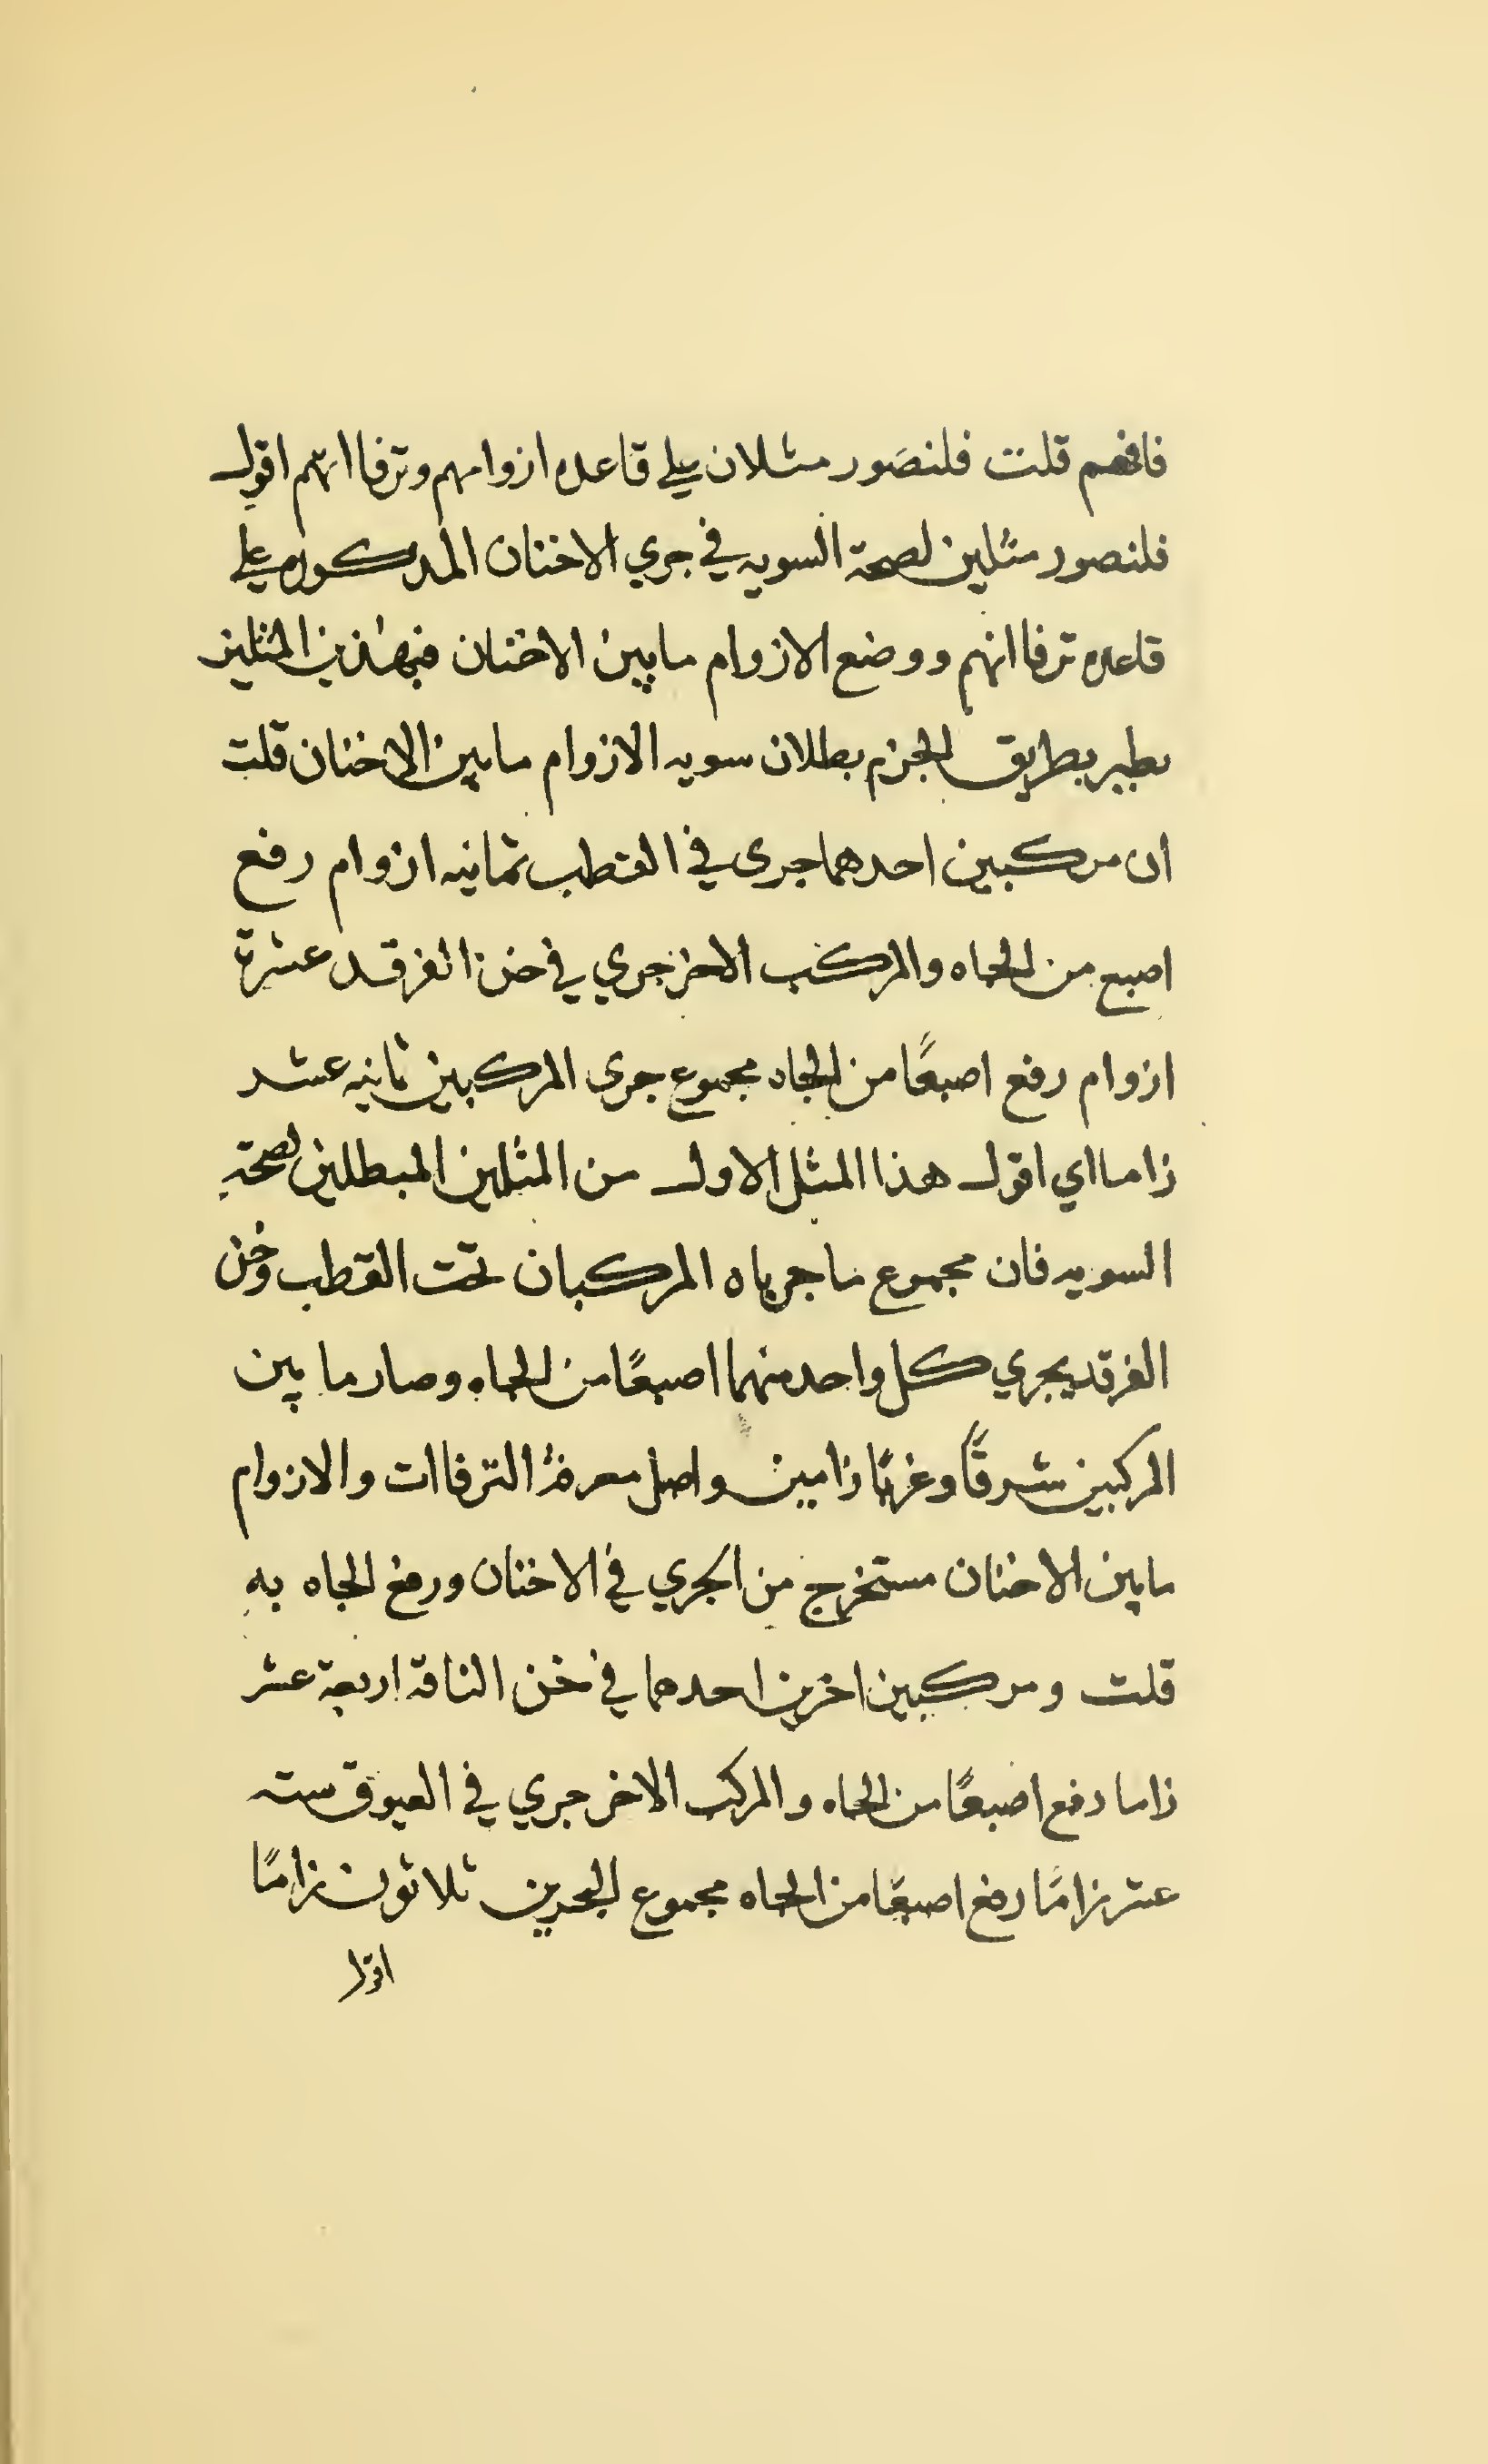 فافهم قلت فلنصَور مثلان علي قاعده ازوامهم وترفااتهم اقول
فلنصور مثلين لصحة السويه في جري الاخنان المدكوره علي
قاعده ترفااتهم ووضع الازوام مابين الاخنان فبهذين المثلين
بطريق الجزم بطلان سويه الازوام مابين الاخنان قلت
ان مركبين احدهما جرى في القطب ثمانيه ازوام رفع
اصبع من الجاه والمركب الاخر جري في خن الفرقد عشرة
ازوام رفع اصبعًا من الجاه مجموع جرى المركبين ثمانيه عشر
زاما اي اقول هذا المثل الاول من المثلين المبطلين لصحة
السويه فان مجموع ماجرياه المركبان تحت القطب وخن
الفرقد يجري كل واحد منهما اصبعًا من الجاه وصار ما بين
المركبين شرقًا وغربًا زامين واصل معرفة الترفاات والازوام
مابين الاخنان مستخرج من الجري في الاخنان ورفع الجاه به
قلت ومركبين اخرين احدهما في خن الناقة اربعة عشر
زاما رفع اصبعًا من الجاه والمركب الاخر جري في العيوق سته
عشر زامًا رفع اصبعًا من الجاه مجموع الجريين ثلاثون زامًا
اقول